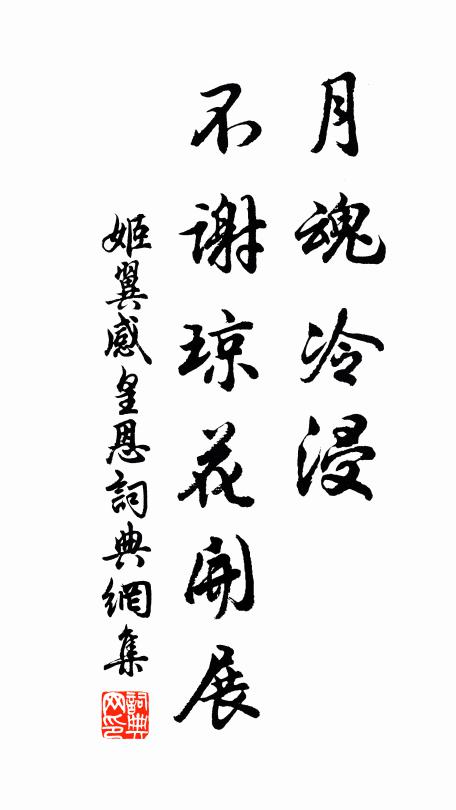 月魂冷浸
不谢琼花开展
姬翼感皇恩詞典網集
詞典网印